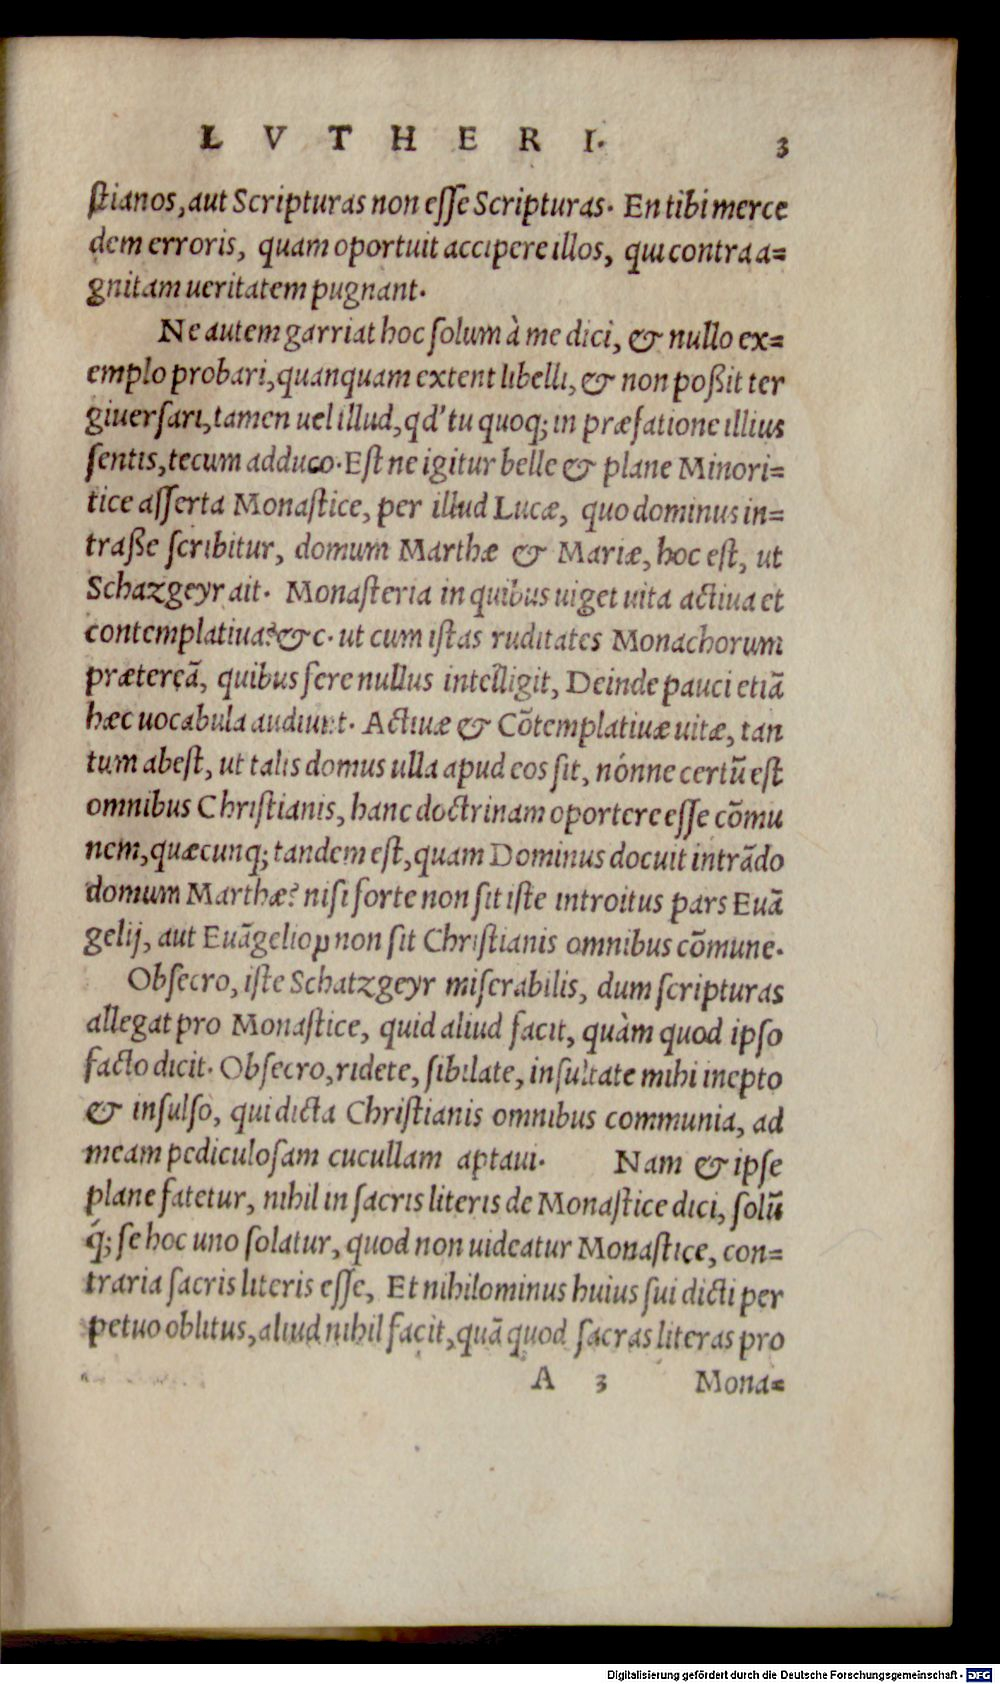 LVTHERI. 3
ſtianos, aut Scripturas non eſſe Scripturas. En tibi merce
dem erroris, quam oportuit accipere illos, qui contra a=
gnitam ueritatem pugnant.
Ne autem garriat hoc ſolum à me dici, & nullo ex=
emplo probari, quanquam extent libelli, & non poßit ter
giuerſari, tamen uel illud, qd' tu quoq; in præfatione illius
ſentis, tecum adduco. Eſt ne igitur belle & plane Minori=
tice aſſerta Monaſtice, per illud Lucæ, quo dominus in=
traße ſcribitur, domum Marthæ & Mariæ, hoc eſt, ut
Schazgeyr ait. Monaſteria in quibus uiget uita actiua et
contemplatiua? &c. ut cum iſtas ruditates Monachorum
prætereā, quibus fere nullus intelligit, Deinde pauci etiā
hæc uocabula audiunt. Actiuæ & Cōtemplatiuæ uitæ, tan
tum abeſt, ut talis domus ulla apud eos ſit, nónne certū eſt
omnibus Chriſtianis, hanc doctrinam oportere eſſe cōmu
nem, quæcunq; tandem eſt, quam Dominus docuit intrādo
domum Marthæ? niſi forte non ſit iſte introitus pars Euā
gelij, aut Euāgelioꝝ non ſit Chriſtianis omnibus cōmune.
Obſecro, iſte Schatzgeyr miſerabilis, dum ſcripturas
allegat pro Monaſtice, quid aliud facit, quàm quod ipſo
facto dicit. Obſecro, ridete, ſibilate, inſultate mihi inepto
& inſulſo, qui dicta Chriſtianis omnibus communia, ad
meam pediculoſam cucullam aptaui. Nam & ipſe
plane fatetur, nihil in ſacris literis de Monaſtice dici, ſolū
q́; ſe hoc uno ſolatur, quod non uideatur Monaſtice, con=
traria ſacris literis eſſe, Et nihilominus huius ſui dicti per
petuo oblitus, aliud nihil facit, quā quod ſacras literas pro
A 3 Mona=
Digitalisierung gefördert durch die Deutsche Forschungsgemeinschaft - DFG